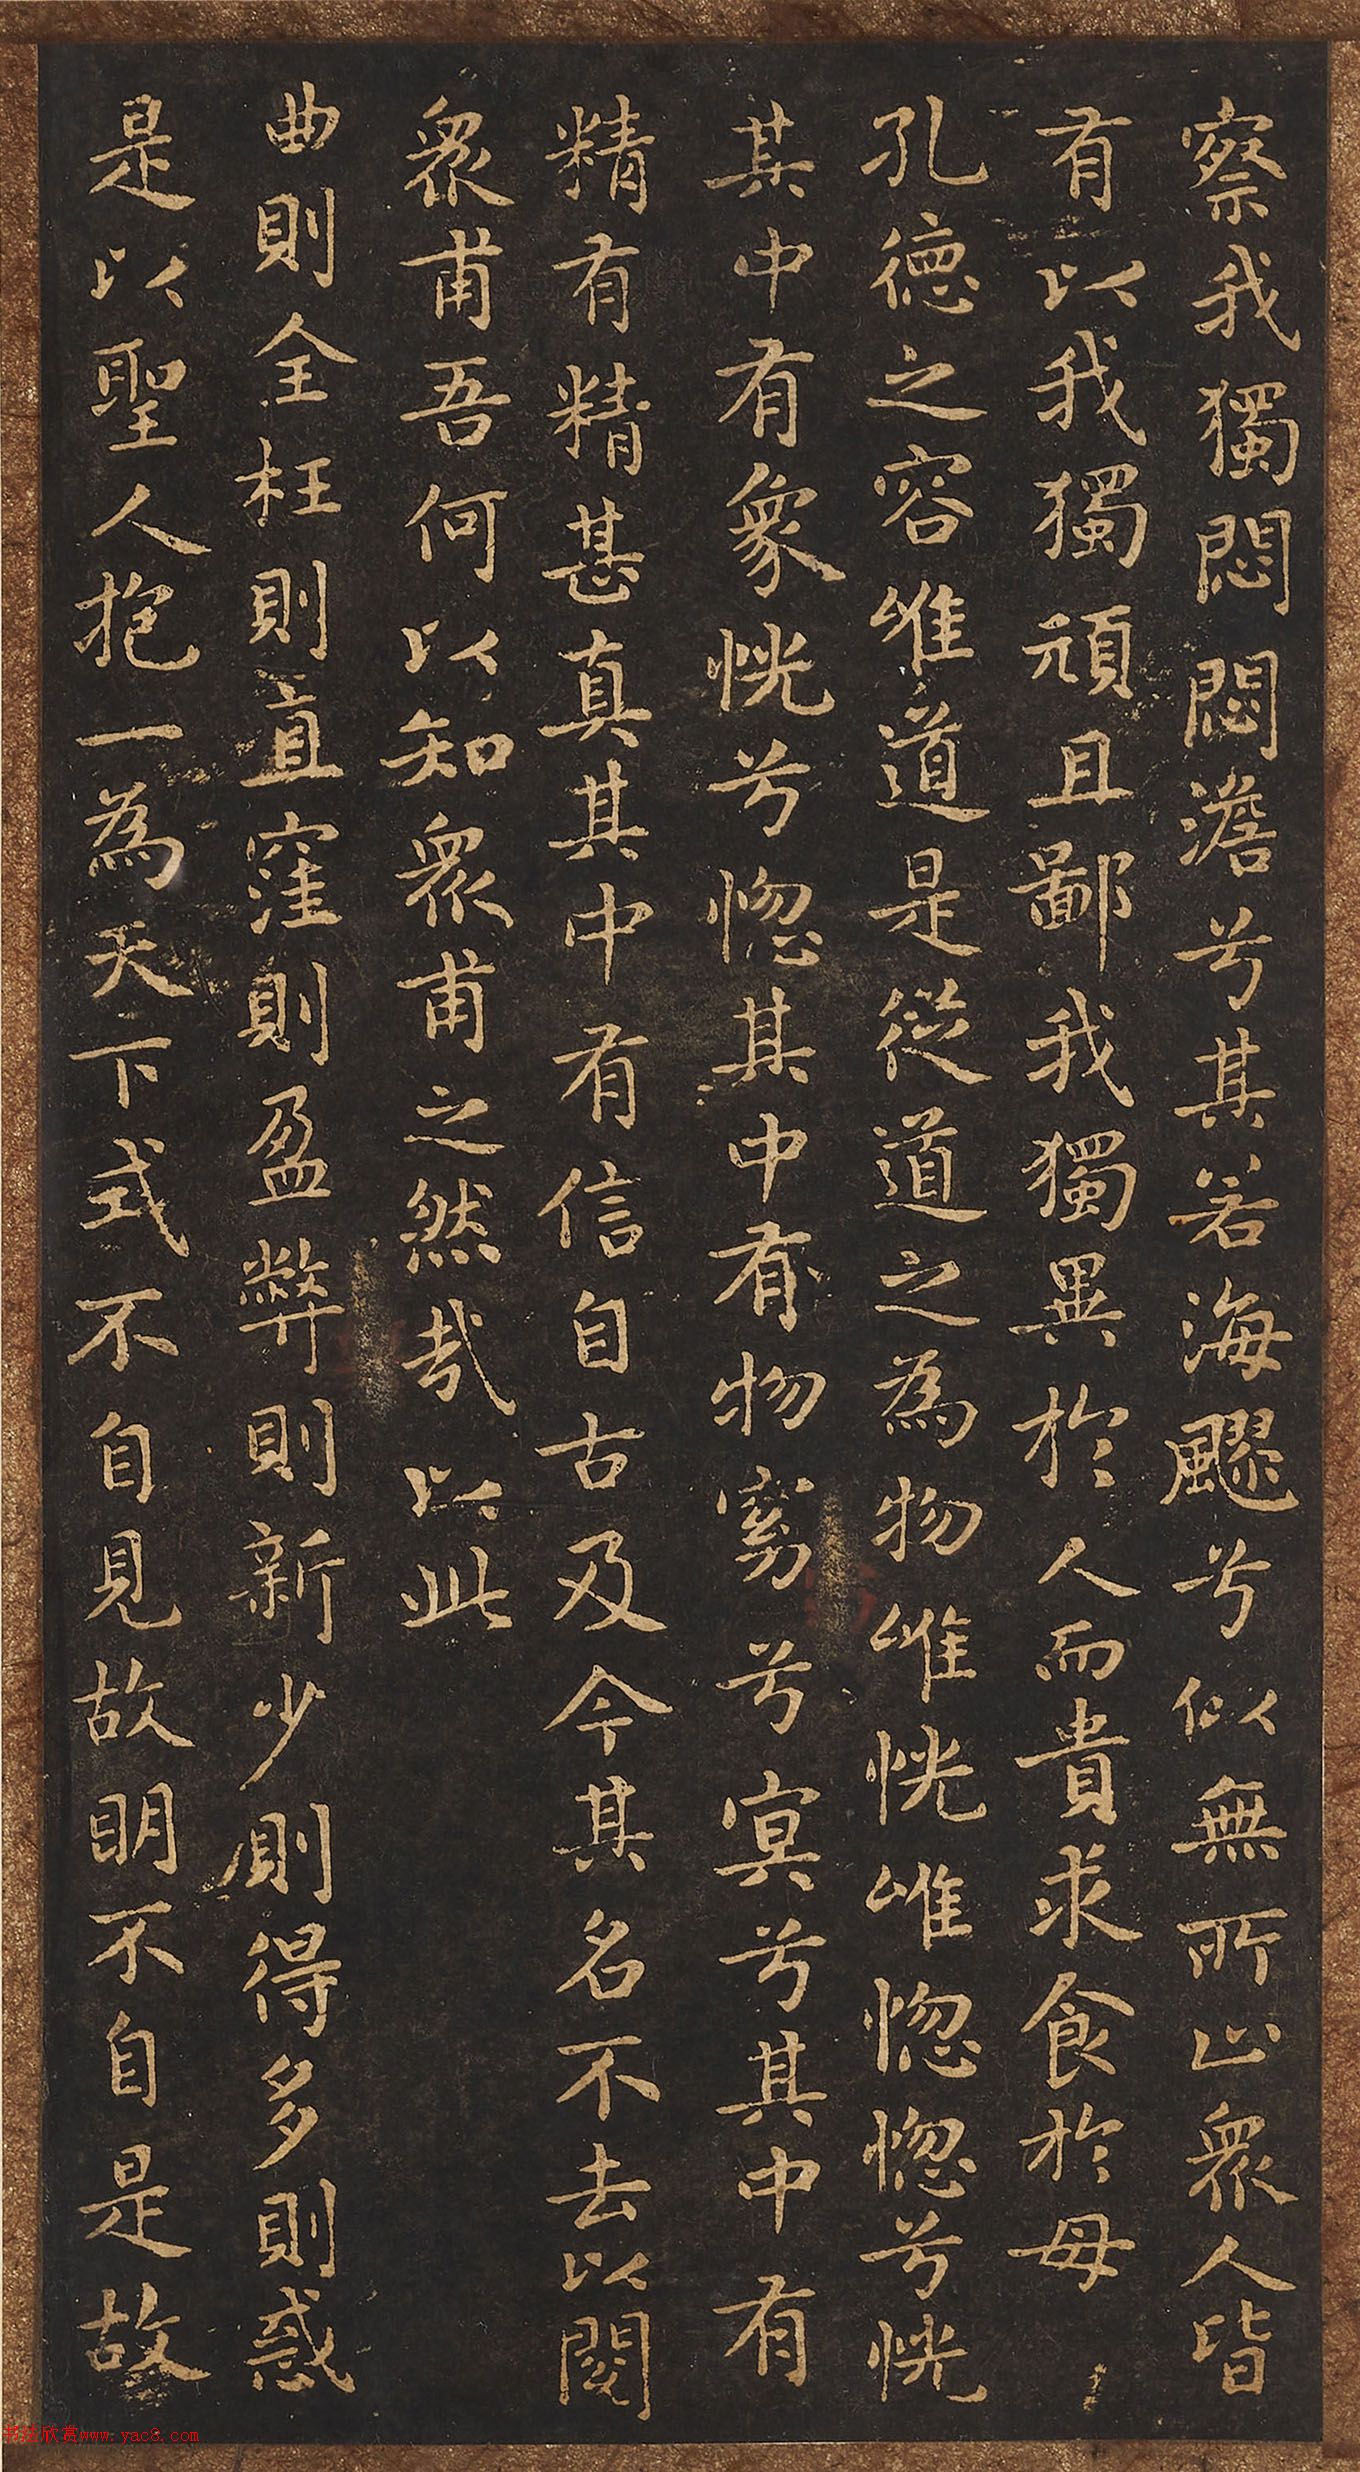 察我獨悶悶澹兮其若海飂兮似無所止衆人皆
有以我獨頑且鄙我獨異於人而貴求食於母
孔德之容唯道是從道之為物唯恍唯惚惚兮恍
其中有象恍兮惚其中有物窈兮冥兮其中有
精有精甚真其中有信自古及今其名不去以閱
衆甫吾何以知衆甫之然哉以此
曲則全枉則直窪則盈弊則新少則得多則惑
是以聖人抱一為天下式不自見故明不自是故
书法欣赏www.yac8.com